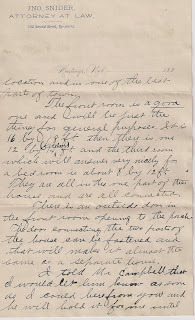 JNO. SNIDER,
ATTORNEY AT LAW,
Hastings, Neb. 188
location and in one of the best
part of town.
The front room is a good
one and will be just the
thing for general purposes. It is
16 by then there is one
12 by and the third room
which will answer very nicely for
a bed room is about 8 by 12 ft
They are all in the one part of the
house and are all connected
There is an outside door in
the front room opening to the porch.
The door connecting the two parts of
the house can be fastened and
that will make it almost the
same as a separate house.
I told Mr Campbell that
I would let him know as soon
as I could hear from you and
he will hold it for me until